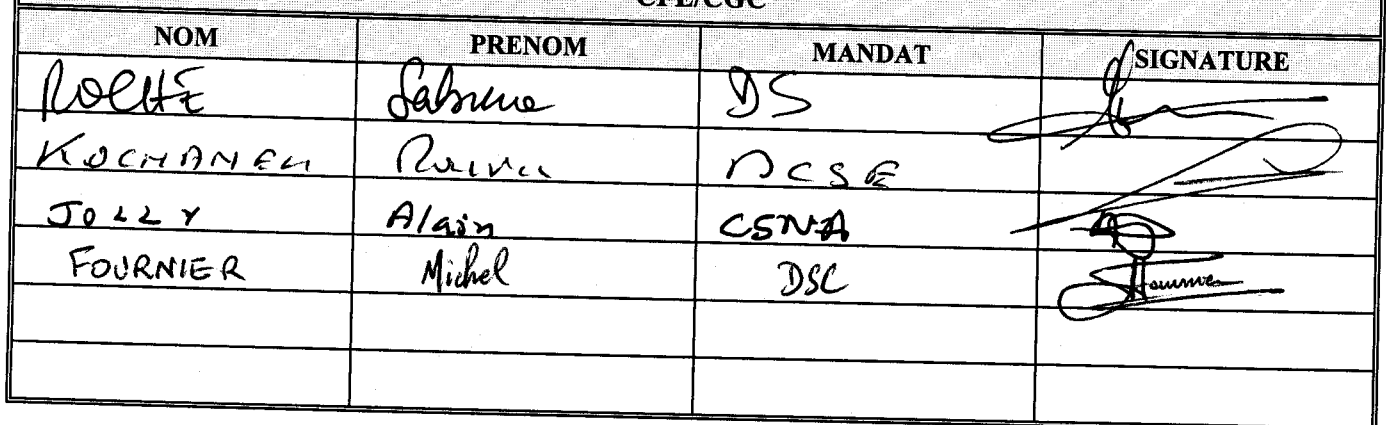 CFE/CGC
NOM PRENOM MANDAT SIGNATURE
ROCHE Sabrina DS
KOCHANEK DCSE
JOLLY Alain CSNA
FOURNIER Michel DSC